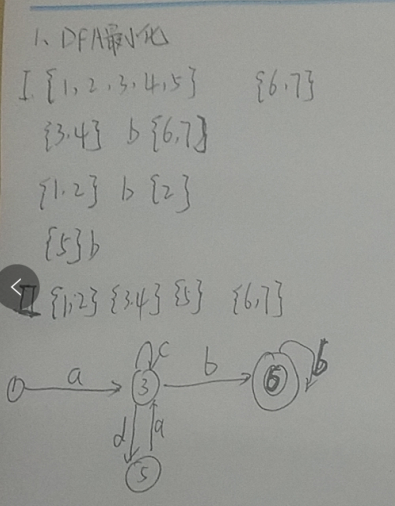 1、DFA最小化
I. {1,2,3,4,5} {6,7}
{3.4} b {6,7}
{1.2} b {2}
{5} b
II {1,2} {3.4} {5} {6,7}
c
a b b
1 3 6
d a
5